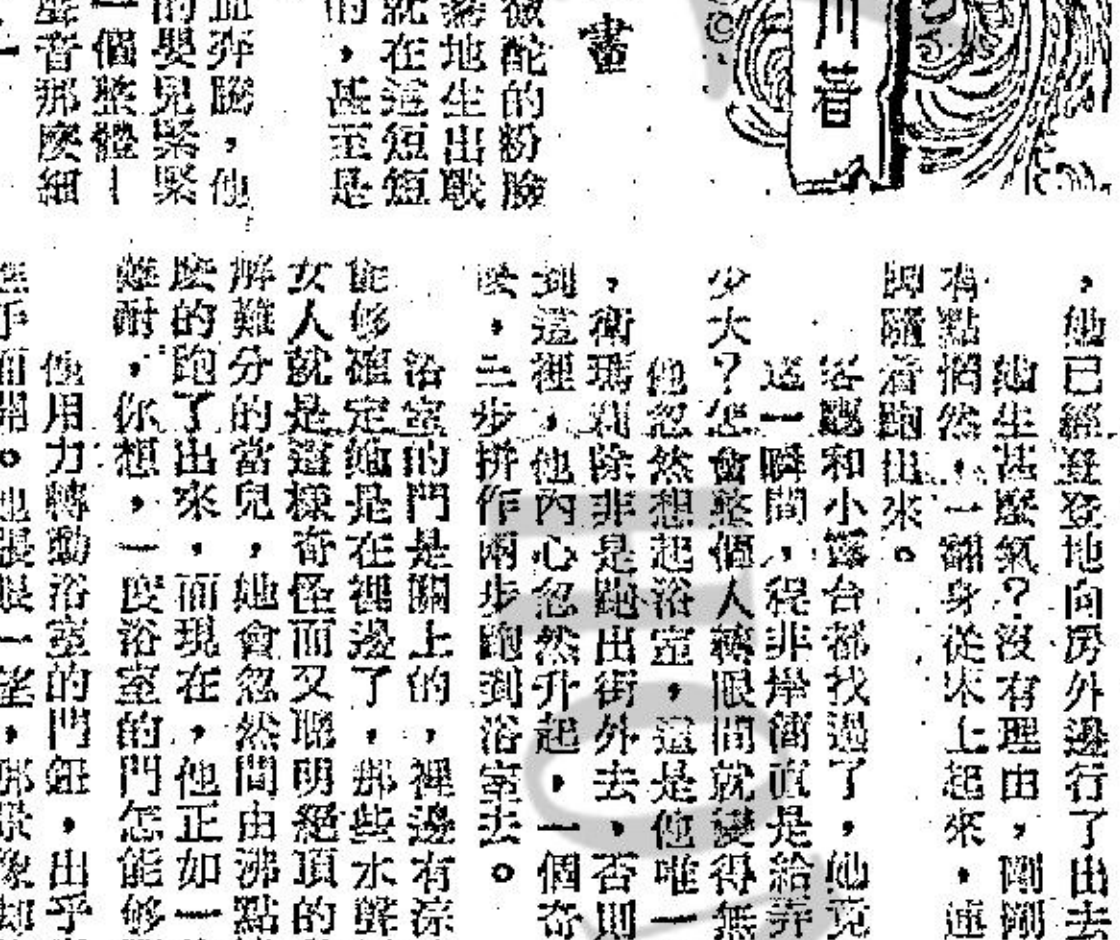 川著
畫
酡的粉臉
落地生出戰
就在這短短
的，甚至是
血弹膨，他
的嬰兒緊緊
一個整體—
音那麼細
，她已經登登地向房外邊行了出去
她生甚麼氣？沒有理由，剛剛
有點惘然，一翻身從床上起來，連
脚隨着跑出來。
客廳和小露台都找過了，她竟
這一瞬間，程非岸簡直是給弄
少大？怎會整個人轉眼間就變得無
他忽然想起浴室，這是他唯一
，衛瑪莉除非是跑出街外去，否則
到這裡，他內心忽然升起，一個奇
，三步拼作兩步跑到浴室去。
浴室的門是關上的，裡邊有淙
能够確定她是在裡邊了，那些水聲
女人就是這樣奇怪而又聰明絕頂的
解難分的當兒，她會忽然間由沸點
麽的跑了出來，而現在，他正如一
難耐，你想，一度浴室的門怎能够
他用力轉動浴室的門鈕，出乎
手而開。他張眼一望，那景象却